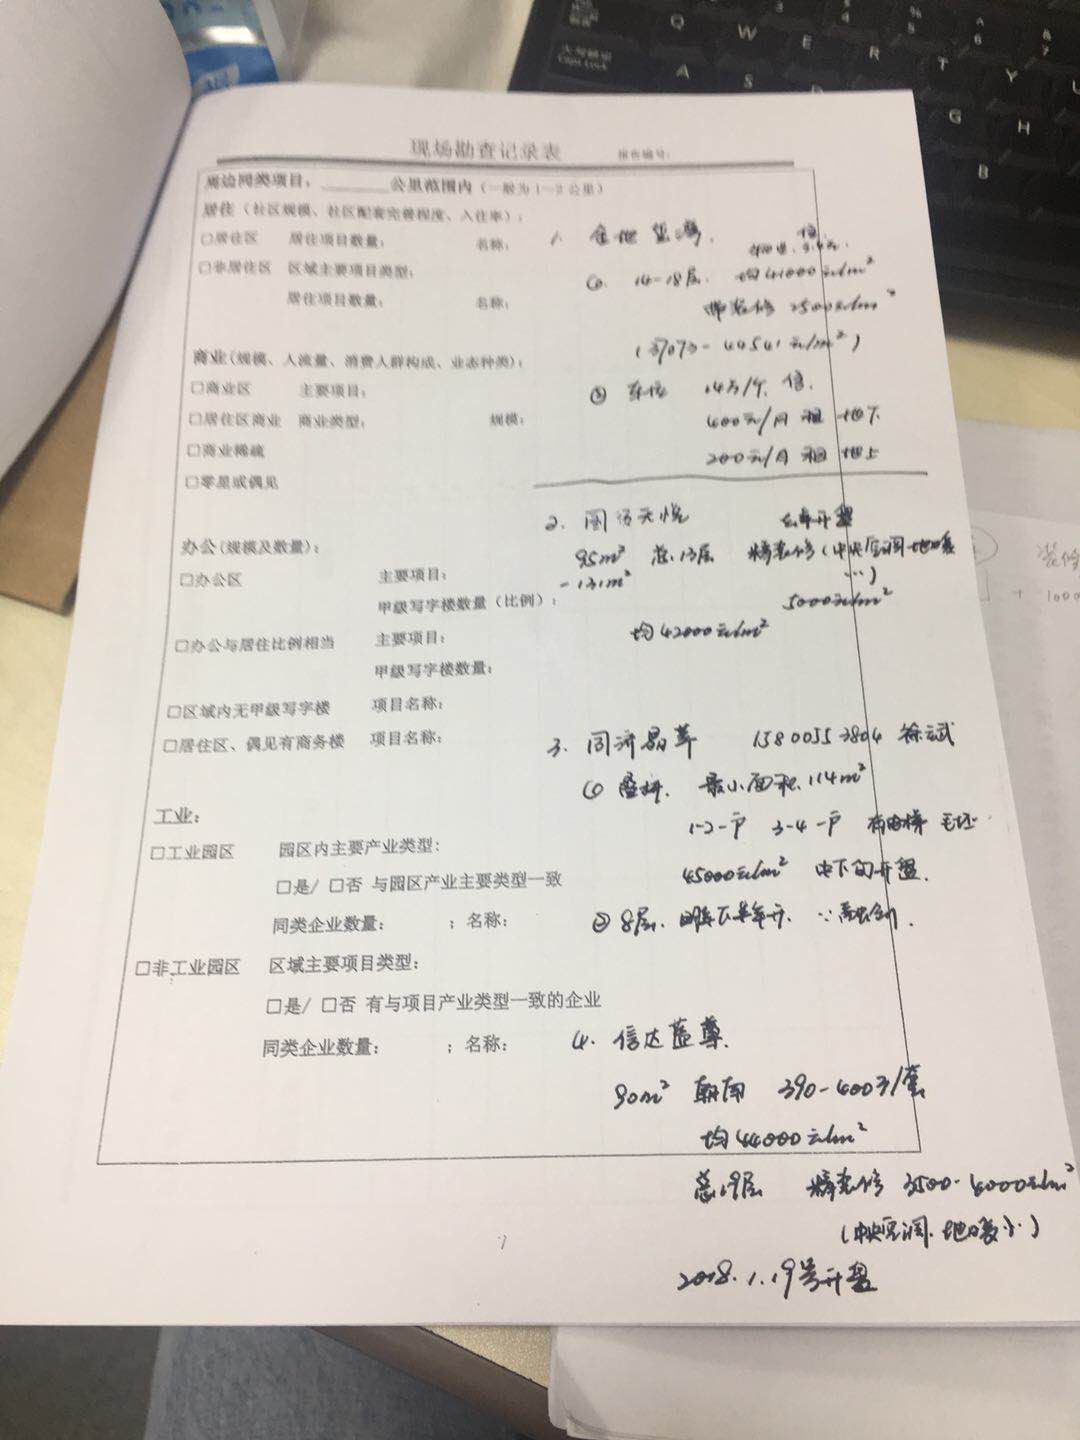 现场勘查记录表 报告编号:
周边同类项目: ______公里范围内(一般为1-2公里)
居住(社区规模、社区配套完善程度、入住率):
□居住区 居住项目数量: 名称:
1.
□非居住区 区域主要项目类型:
居住项目数量: 名称:
14-18层. 均41000元/m²
带装修 2500元/m²
(37073-44541元/m²)
商业(规模、人流量、消费人群构成、业态种类):
□商业区 主要项目:
② 车位 14万/个.
□居住区商业 商业类型: 规模:
400元/月 租 地下
□商业稀疏
200元/月 租 地上
□零星或偶见
2. 国仕天悦 去年开盘
办公(规模及数量):
95m² 总13层 精装修(中央空调 地暖
-131m² …)
□办公区 主要项目:
甲级写字楼数量(比例):
5000元/m²
均42000元/m²
□办公与居住比例相当 主要项目:
甲级写字楼数量:
□区域内无甲级写字楼 项目名称:
□居住区、偶见有商务楼 项目名称:
3. 同济晶萃 15800553804
① 叠拼. 最小面积.114m²
工业:
1-2一户 3-4一户 毛坯
□工业园区 园区内主要产业类型:
45000元/m² 开盘.
□是/ □否 与园区产业主要类型一致
同类企业数量: ;名称:
② 8层.
□非工业园区 区域主要项目类型:
□是/ □否 有与项目产业类型一致的企业
同类企业数量: ;名称:
4. 信达蓝尊.
90m² 朝南 390-400万/套
均44000元/m²
精装修 3500-4000元/m²
(中央空调.地暖)
2018.1.19号开盘
1
Q W E R T Y
A S G H
B
Caps Lock
装修